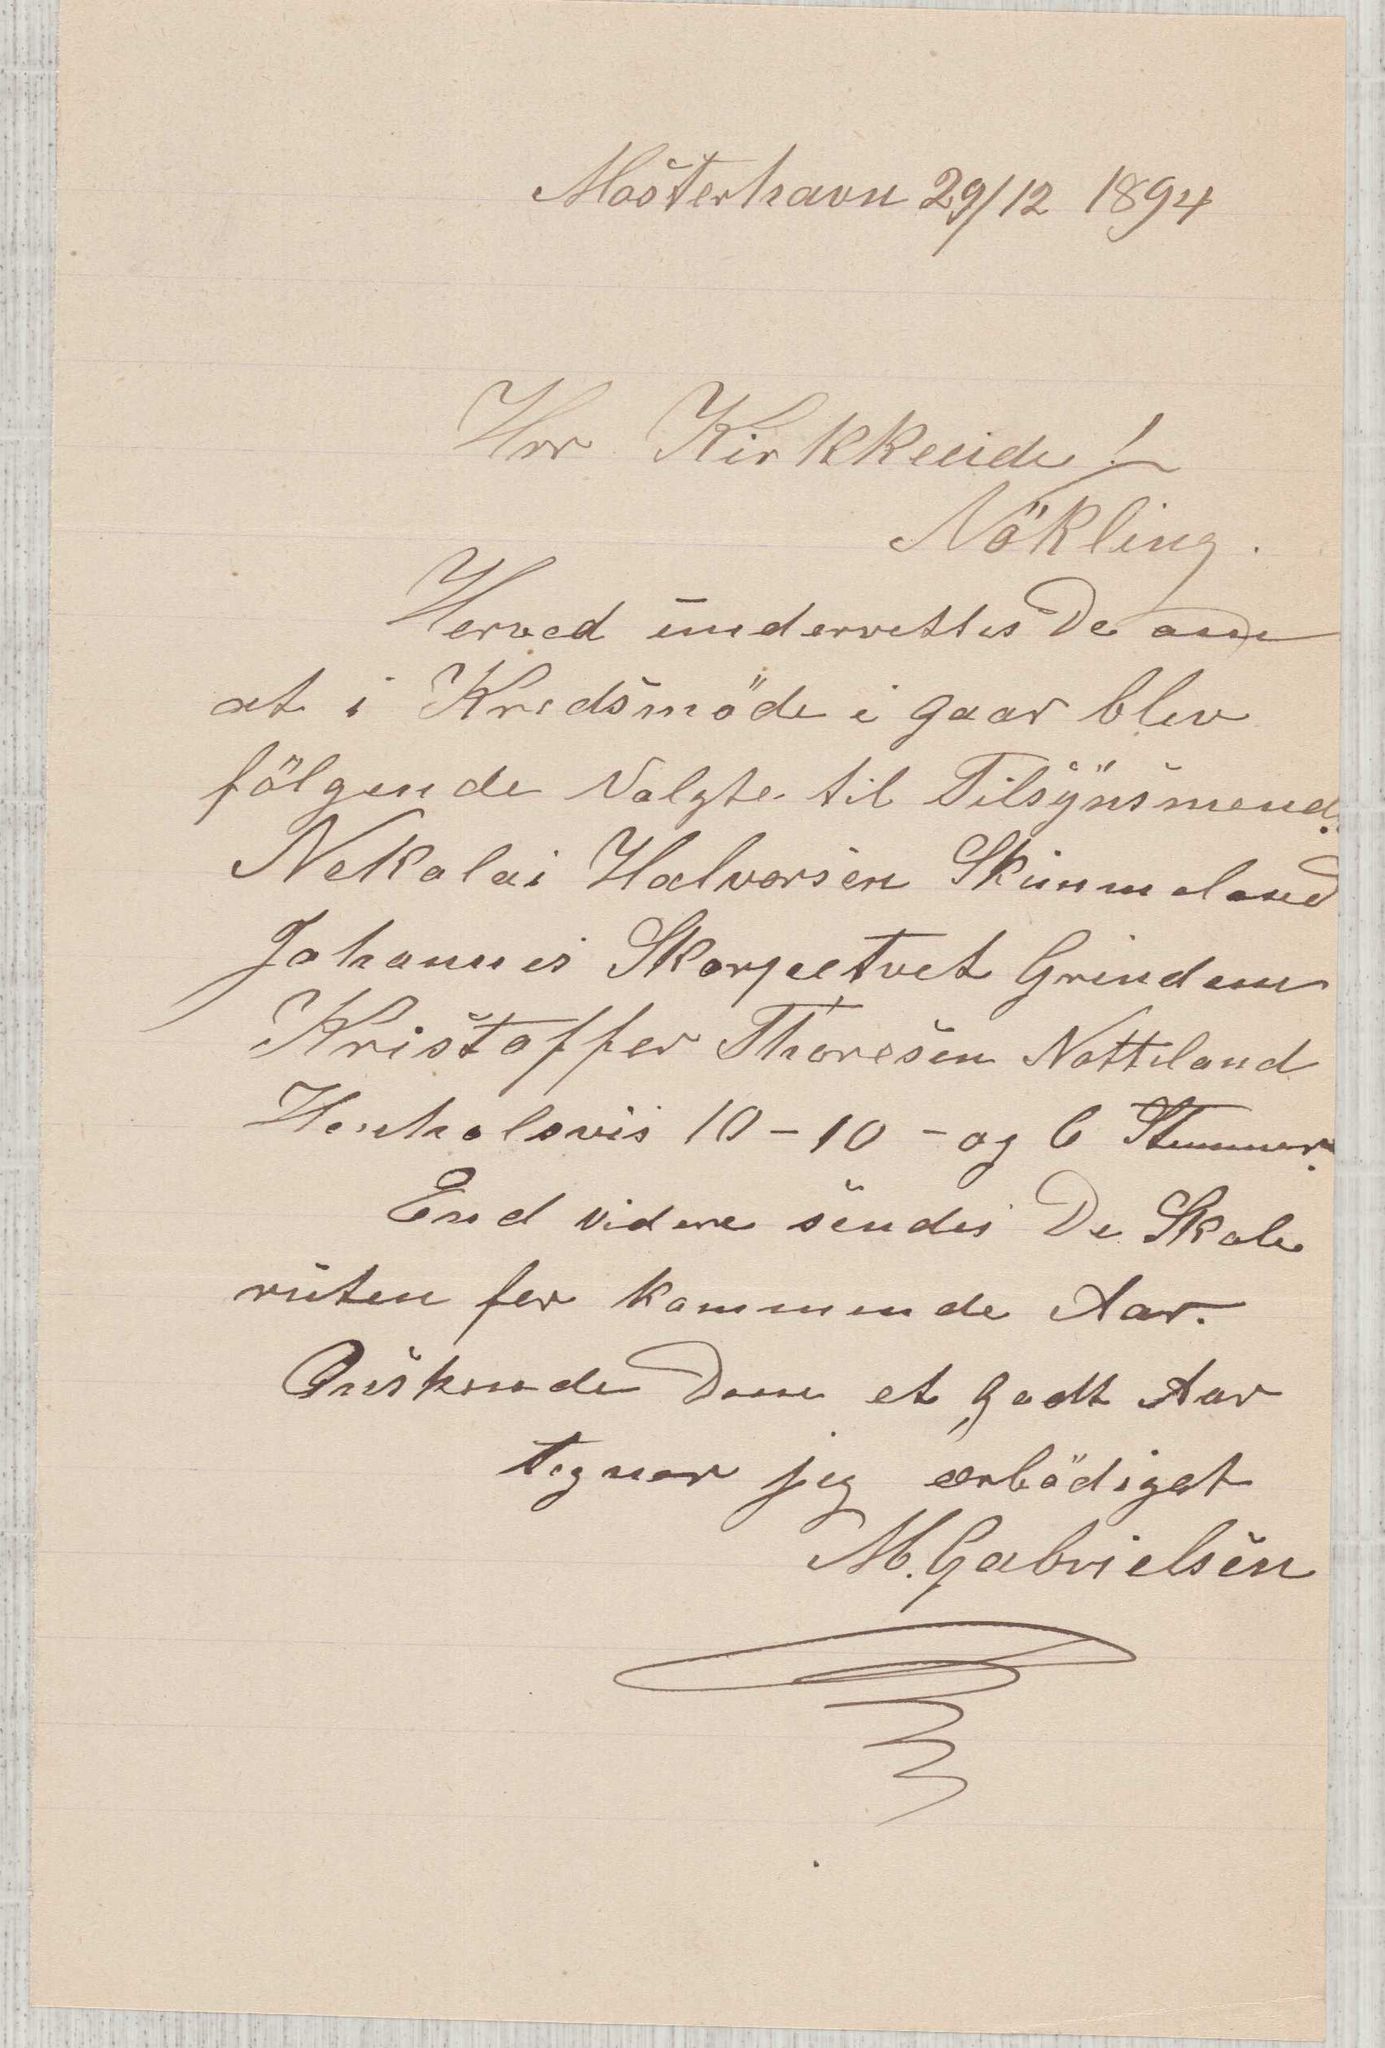 Mosterhavn 29/12 1894
Hrr Kirkkeeide!
Nökling.
Herved underrettes De om
at i Kredsmöde i gaar blev
fölgende valgte til Tilsynsmend.
Nekolai Halvorsen Skimmeland
Johannes Skarpetvet Grindem
Kristoffer Thoresen Notteland
Henholsvis 10 – 10 – og 6 Stemmer.
End videre sendes De Skole
ruten for kommende Aar.
Önskende Dem et godt Aar
tegner jeg ærbödigst
M. Gabrielsen